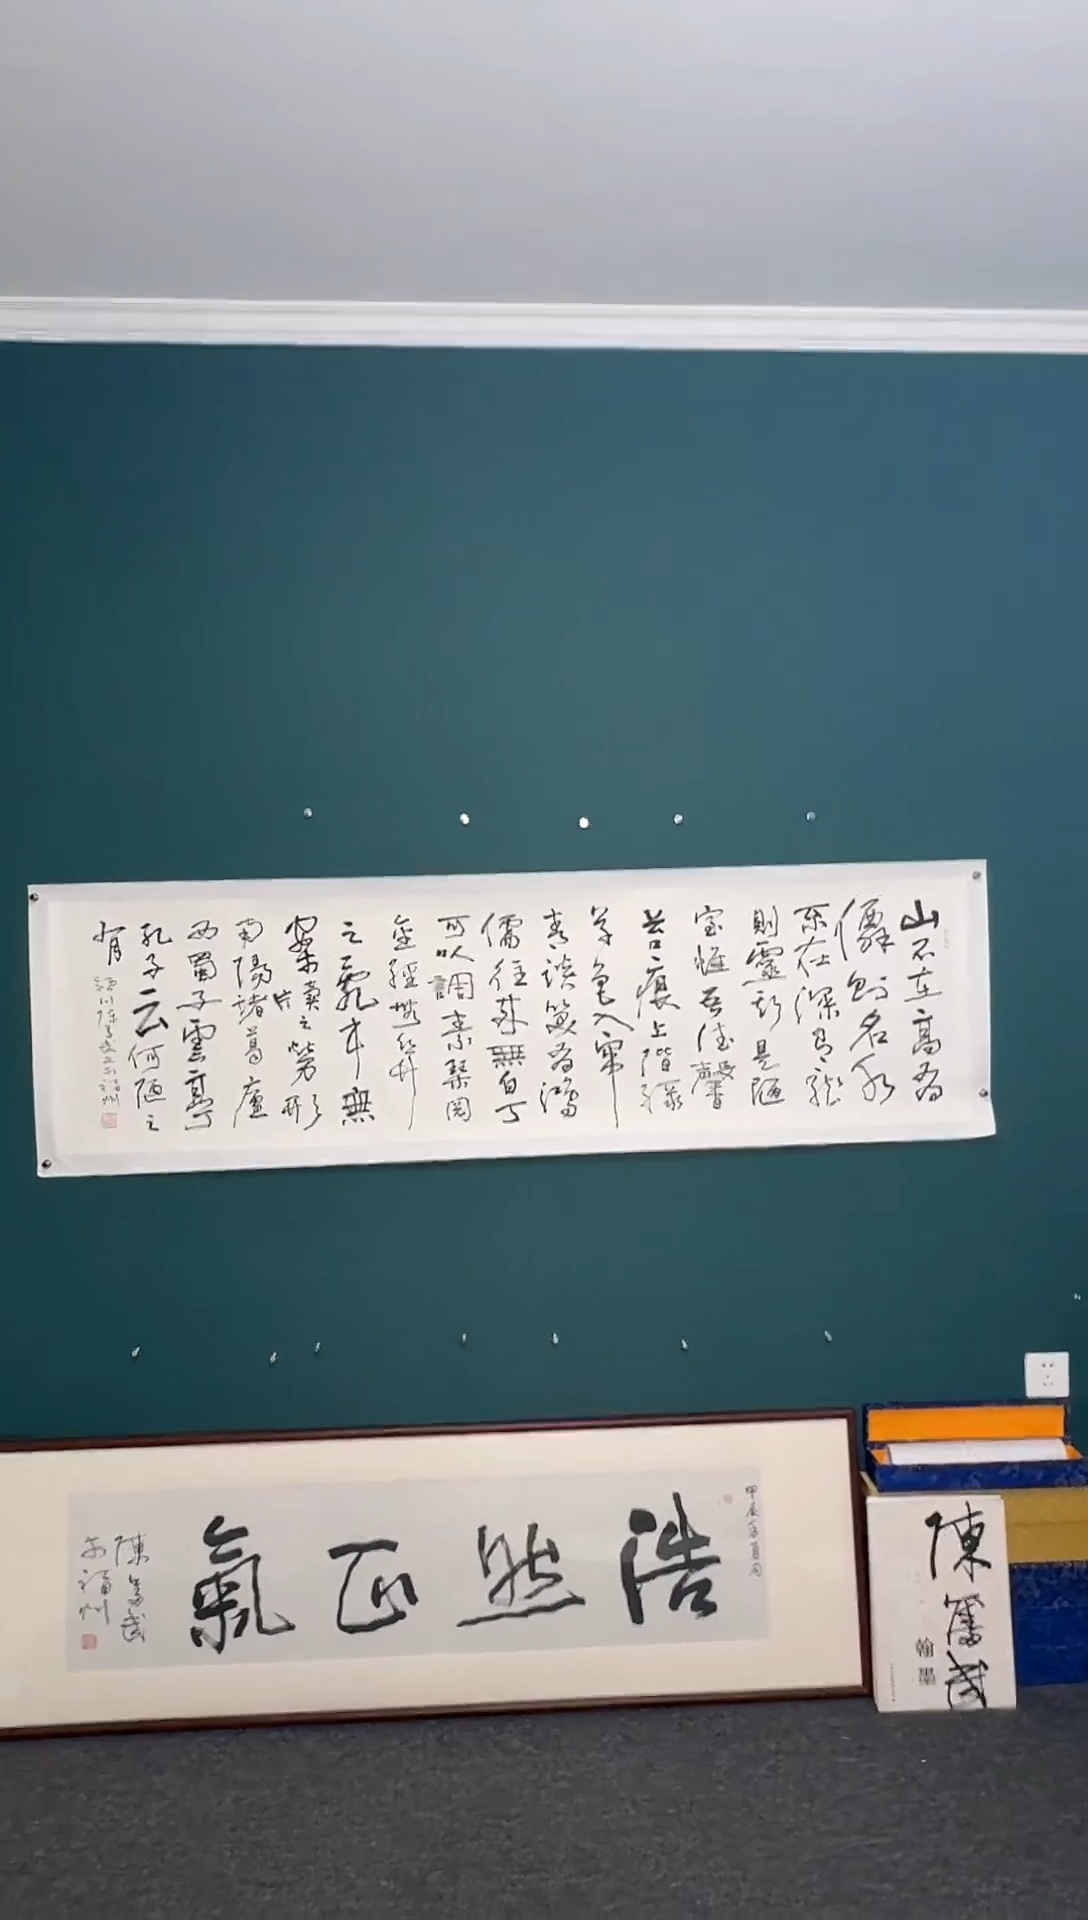 山不在高有
僊則名水
不在深有龍
則靈斯是陋
室惟吾德馨
苔痕上階綠
草色入帘
青談笑有鴻
儒往來無白丁
可以調素琴閱
金經無絲竹
之亂耳無
案牘之勞形
南陽諸葛廬
西蜀子雲亭
孔子云何陋之
有
浩然正氣
陳奮武
於福州
陳奮武
翰墨